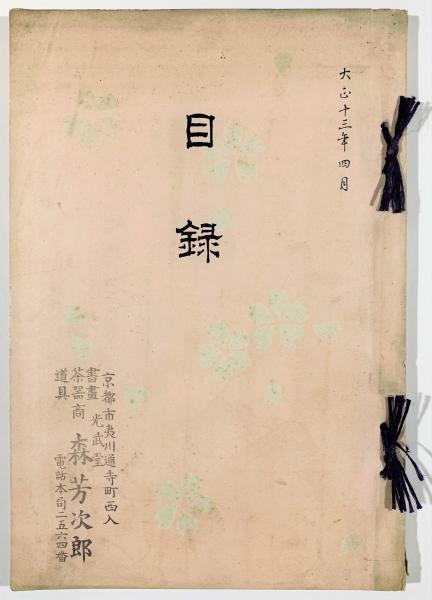 大正十三年四月
目録
京都市夷川通寺町西入
書畫
茶器商
道具
光武堂
森芳次郎
電話本局二五六四番